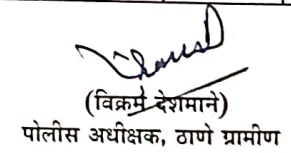 (विक्रम देशमाने)
पोलीस अधीक्षक, ठाणे ग्रामीण